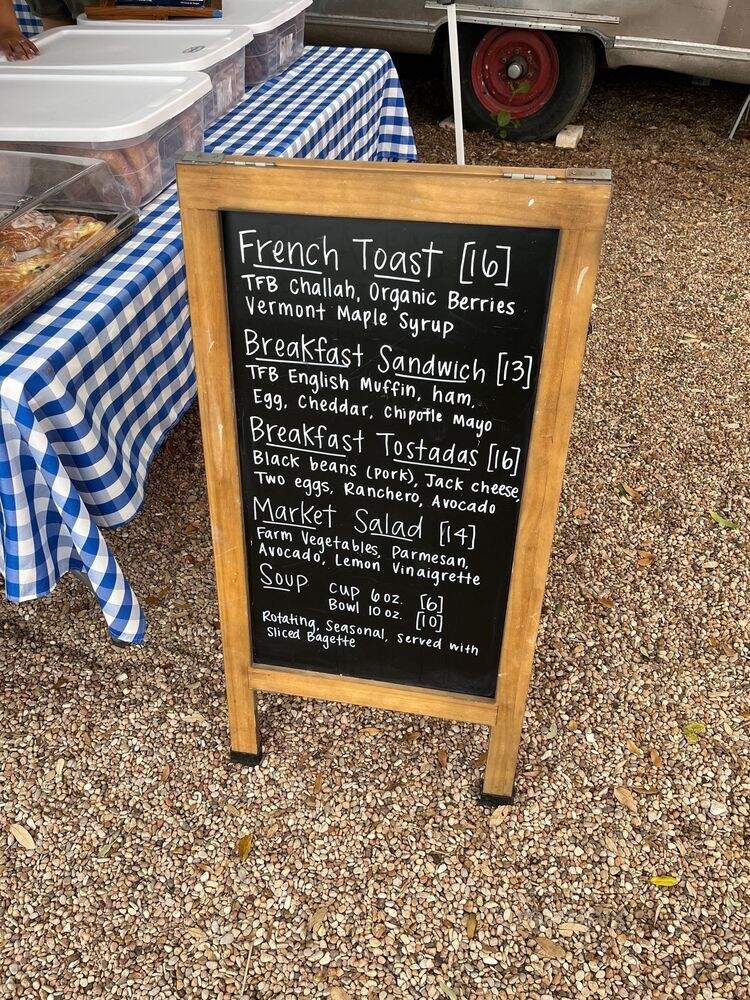 French Toast [16]
TFB Challah, Organic Berries
Vermont Maple Syrup
Breakfast Sandwich [13]
TFB English Muffin, ham,
Egg, Cheddar, Chipotle Mayo
Breakfast Tostadas [16]
Black beans (pork), Jack cheese,
Two eggs, Ranchero, Avocado
Market Salad [14]
Farm Vegetables, Parmesan,
Avocado, Lemon Vinaigrette
Soup Cup 6oz. [6]
Bowl 10 oz. [10]
Rotating, Seasonal, served with
Sliced Bagette